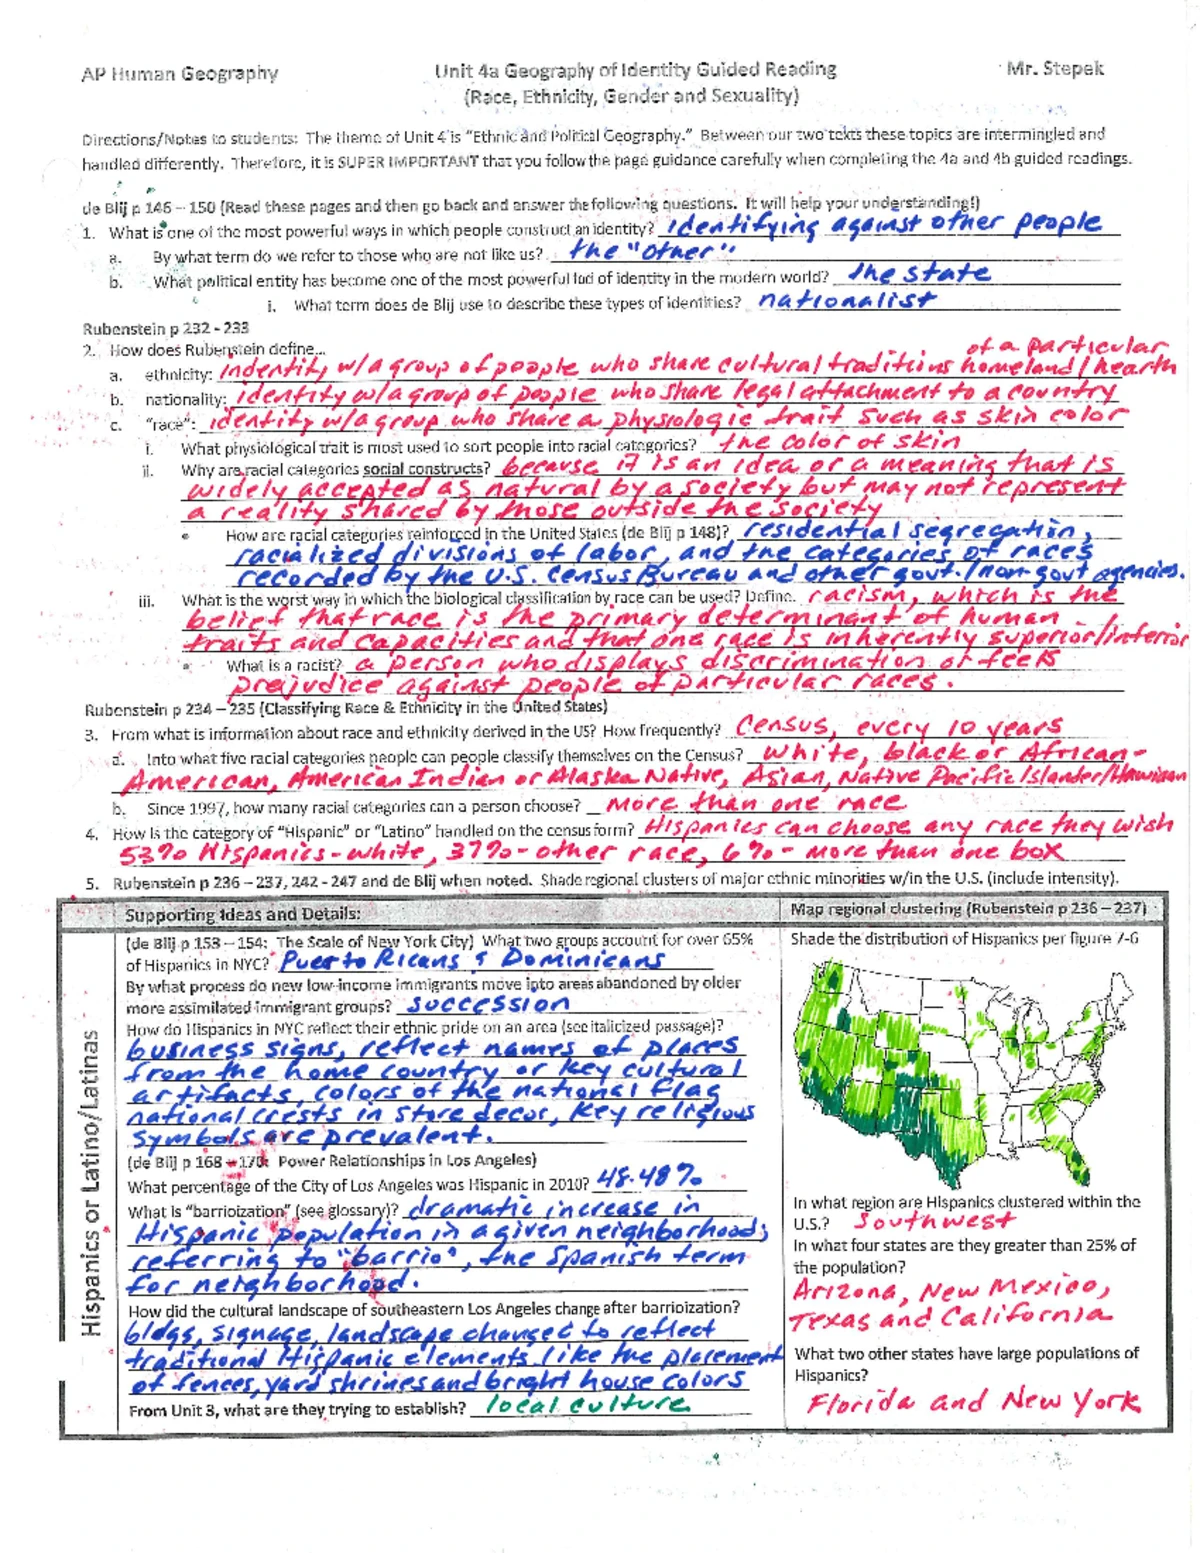 AP Human Geography
Unit 4a Geography of Identity Guided Reading
Mr. Stepek
(Race, Ethnicity, Gender and Sexuality)
Directions/Notes to students: The theme of Unit 4 is "Ethnic and Political Geography." Between our two texts these topics are intermingled and
handled differently. Therefore, it is SUPER IMPORTANT that you follow the page guidance carefully when completing the 4a and 4b guided readings.
de Blij p 146 – 150 (Read these pages and then go back and answer the following questions. It will help your understanding!)
1. What is one of the most powerful ways in which people construct an identity? Identifying against other people
a. By what term do we refer to those who are not like us? the "other"
b. What political entity has become one of the most powerful foci of identity in the modern world? the state
i. What term does de Blij use to describe these types of identities? nationalist
Rubenstein p 232 - 233
2. How does Rubenstein define... of a particular
a. ethnicity: Indentity w/a group of people who share cultural traditions homeland/hearth
b. nationality: identity w/a group of people who share legal attachment to a country
c. "race": identity w/a group who share a physiologic trait such as skin color
i. What physiological trait is most used to sort people into racial categories? the color of skin
ii. Why are racial categories social constructs? because it is an idea or a meaning that is
widely accepted as natural by a society but may not represent
a reality shared by those outside the society
• How are racial categories reinforced in the United States (de Blij p 148)? residential segregation,
racialized divisions of labor, and the categories of races
recorded by the U.S. Census Bureau and other govt./non-govt agencies.
iii. What is the worst way in which the biological classification by race can be used? Define. racism, which is the
belief that race is the primary determinant of human
traits and capacities and that one race is inherently superior/inferior
• What is a racist? a person who displays discrimination or feels
prejudice against people of particular races.
Rubenstein p 234 – 235 (Classifying Race & Ethnicity in the United States)
3. From what is information about race and ethnicity derived in the US? How frequently? Census, every 10 years
a. Into what five racial categories people can people classify themselves on the Census? White, black or African-
American, American Indian or Alaska Native, Asian, Native Pacific Islander/Hawiian
b. Since 1997, how many racial categories can a person choose? More than one race
4. How is the category of "Hispanic" or "Latino" handled on the census form? Hispanics can choose any race they wish
53% Hispanics - white, 37% - other race, 6% - more than one box
5. Rubenstein p 236 – 237, 242 - 247 and de Blij when noted. Shade regional clusters of major ethnic minorities w/in the U.S. (include intensity).
Supporting Ideas and Details:
Map regional clustering (Rubenstein p 236 – 237)
Hispanics or Latino/Latinas
(de Blij p 153 – 154: The Scale of New York City) What two groups account for over 65%
of Hispanics in NYC? Puerto Ricans & Dominicans
By what process do new low-income immigrants move into areas abandoned by older
more assimilated immigrant groups? succession
How do Hispanics in NYC reflect their ethnic pride on an area (see italicized passage)?
business signs, reflect names of places
from the home country or key cultural
artifacts, colors of the national flag
national crests in store decor, key religious
symbols are prevalent.
(de Blij p 168 – 170: Power Relationships in Los Angeles)
What percentage of the City of Los Angeles was Hispanic in 2010? 48.48%
What is "barrioization" (see glossary)? dramatic increase in
Hispanic population in a given neighborhood;
referring to "barrio", the Spanish term
for neighborhood.
How did the cultural landscape of southeastern Los Angeles change after barrioization?
bldgs, signage, landscape changed to reflect
traditional Hispanic elements like the placement
of fences, yard shrines and bright house colors
From Unit 3, what are they trying to establish? local culture
Shade the distribution of Hispanics per figure 7-6
In what region are Hispanics clustered within the
U.S.? Southwest
In what four states are they greater than 25% of
the population?
Arizona, New Mexico,
Texas and California
What two other states have large populations of
Hispanics?
Florida and New York